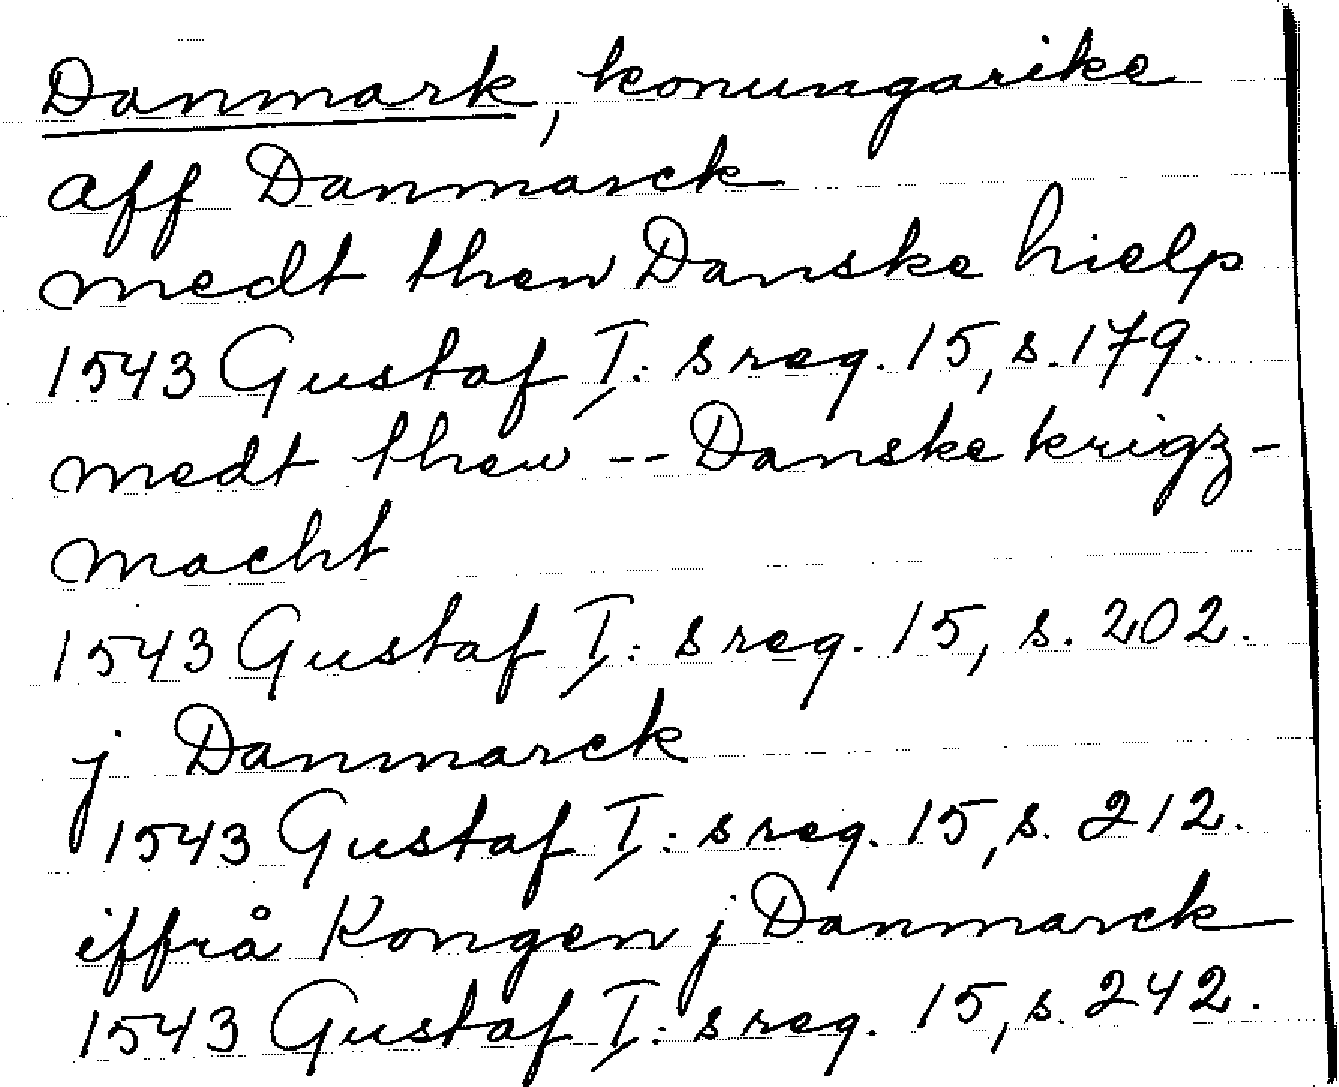 Danmark, konungarike
aff Danmarck
medt then Danske hielp
1543 Gustaf I:s reg. 15, s. 179.
medt then -- Danske krigz-
macht
1543 Gustaf I:s reg. 15, s. 202.
j Danmarck
1543 Gustaf I:s reg. 15, s. 212.
iffrå Kongen j Danmarck
1543 Gustaf I:s reg. 15, s. 242.